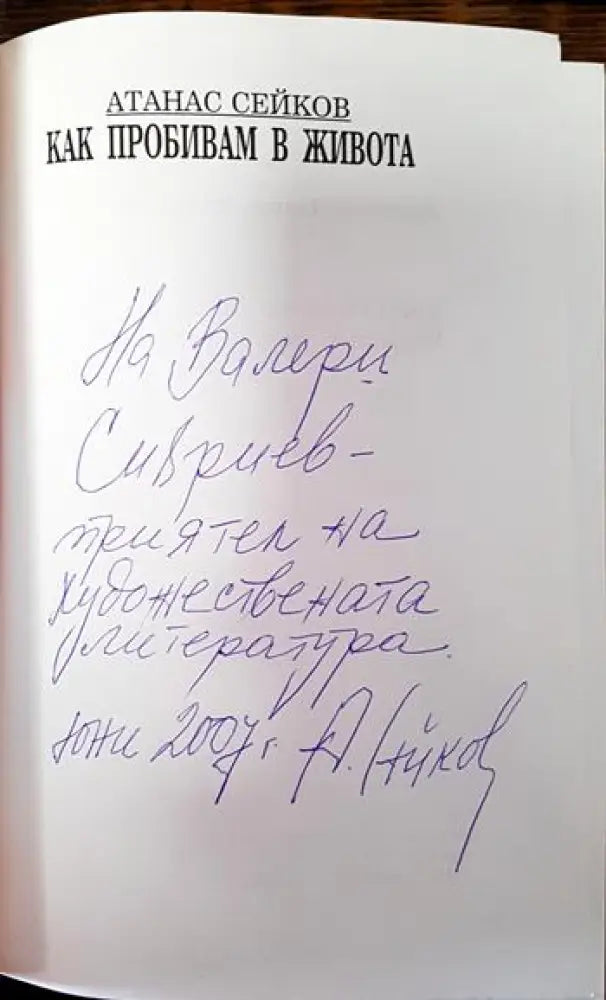 АТАНАС СЕЙКОВ
КАК ПРОБИВАМ В ЖИВОТА
На Валери
Сивриев-
приятел на
художествената
литература.
юни 2007 г. А. Сейков